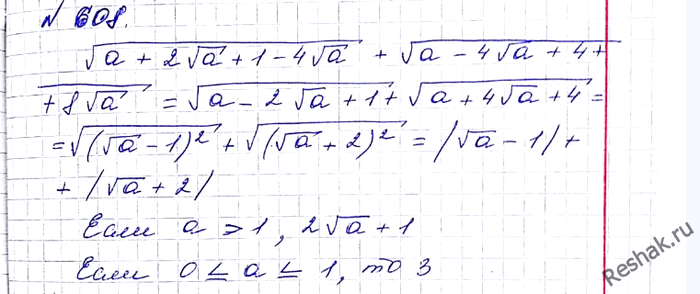 № 608.
√(a + 2√a + 1 - 4√a) + √(a - 4√a + 4 +
+ 8√a) = √(a - 2√a + 1) + √(a + 4√a + 4) =
= √((√a - 1)²) + √((√a + 2)²) = |√a - 1| +
+ |√a + 2|
Если a > 1, 2√a + 1
Если 0 ≤ a ≤ 1, то 3
Reshak.ru